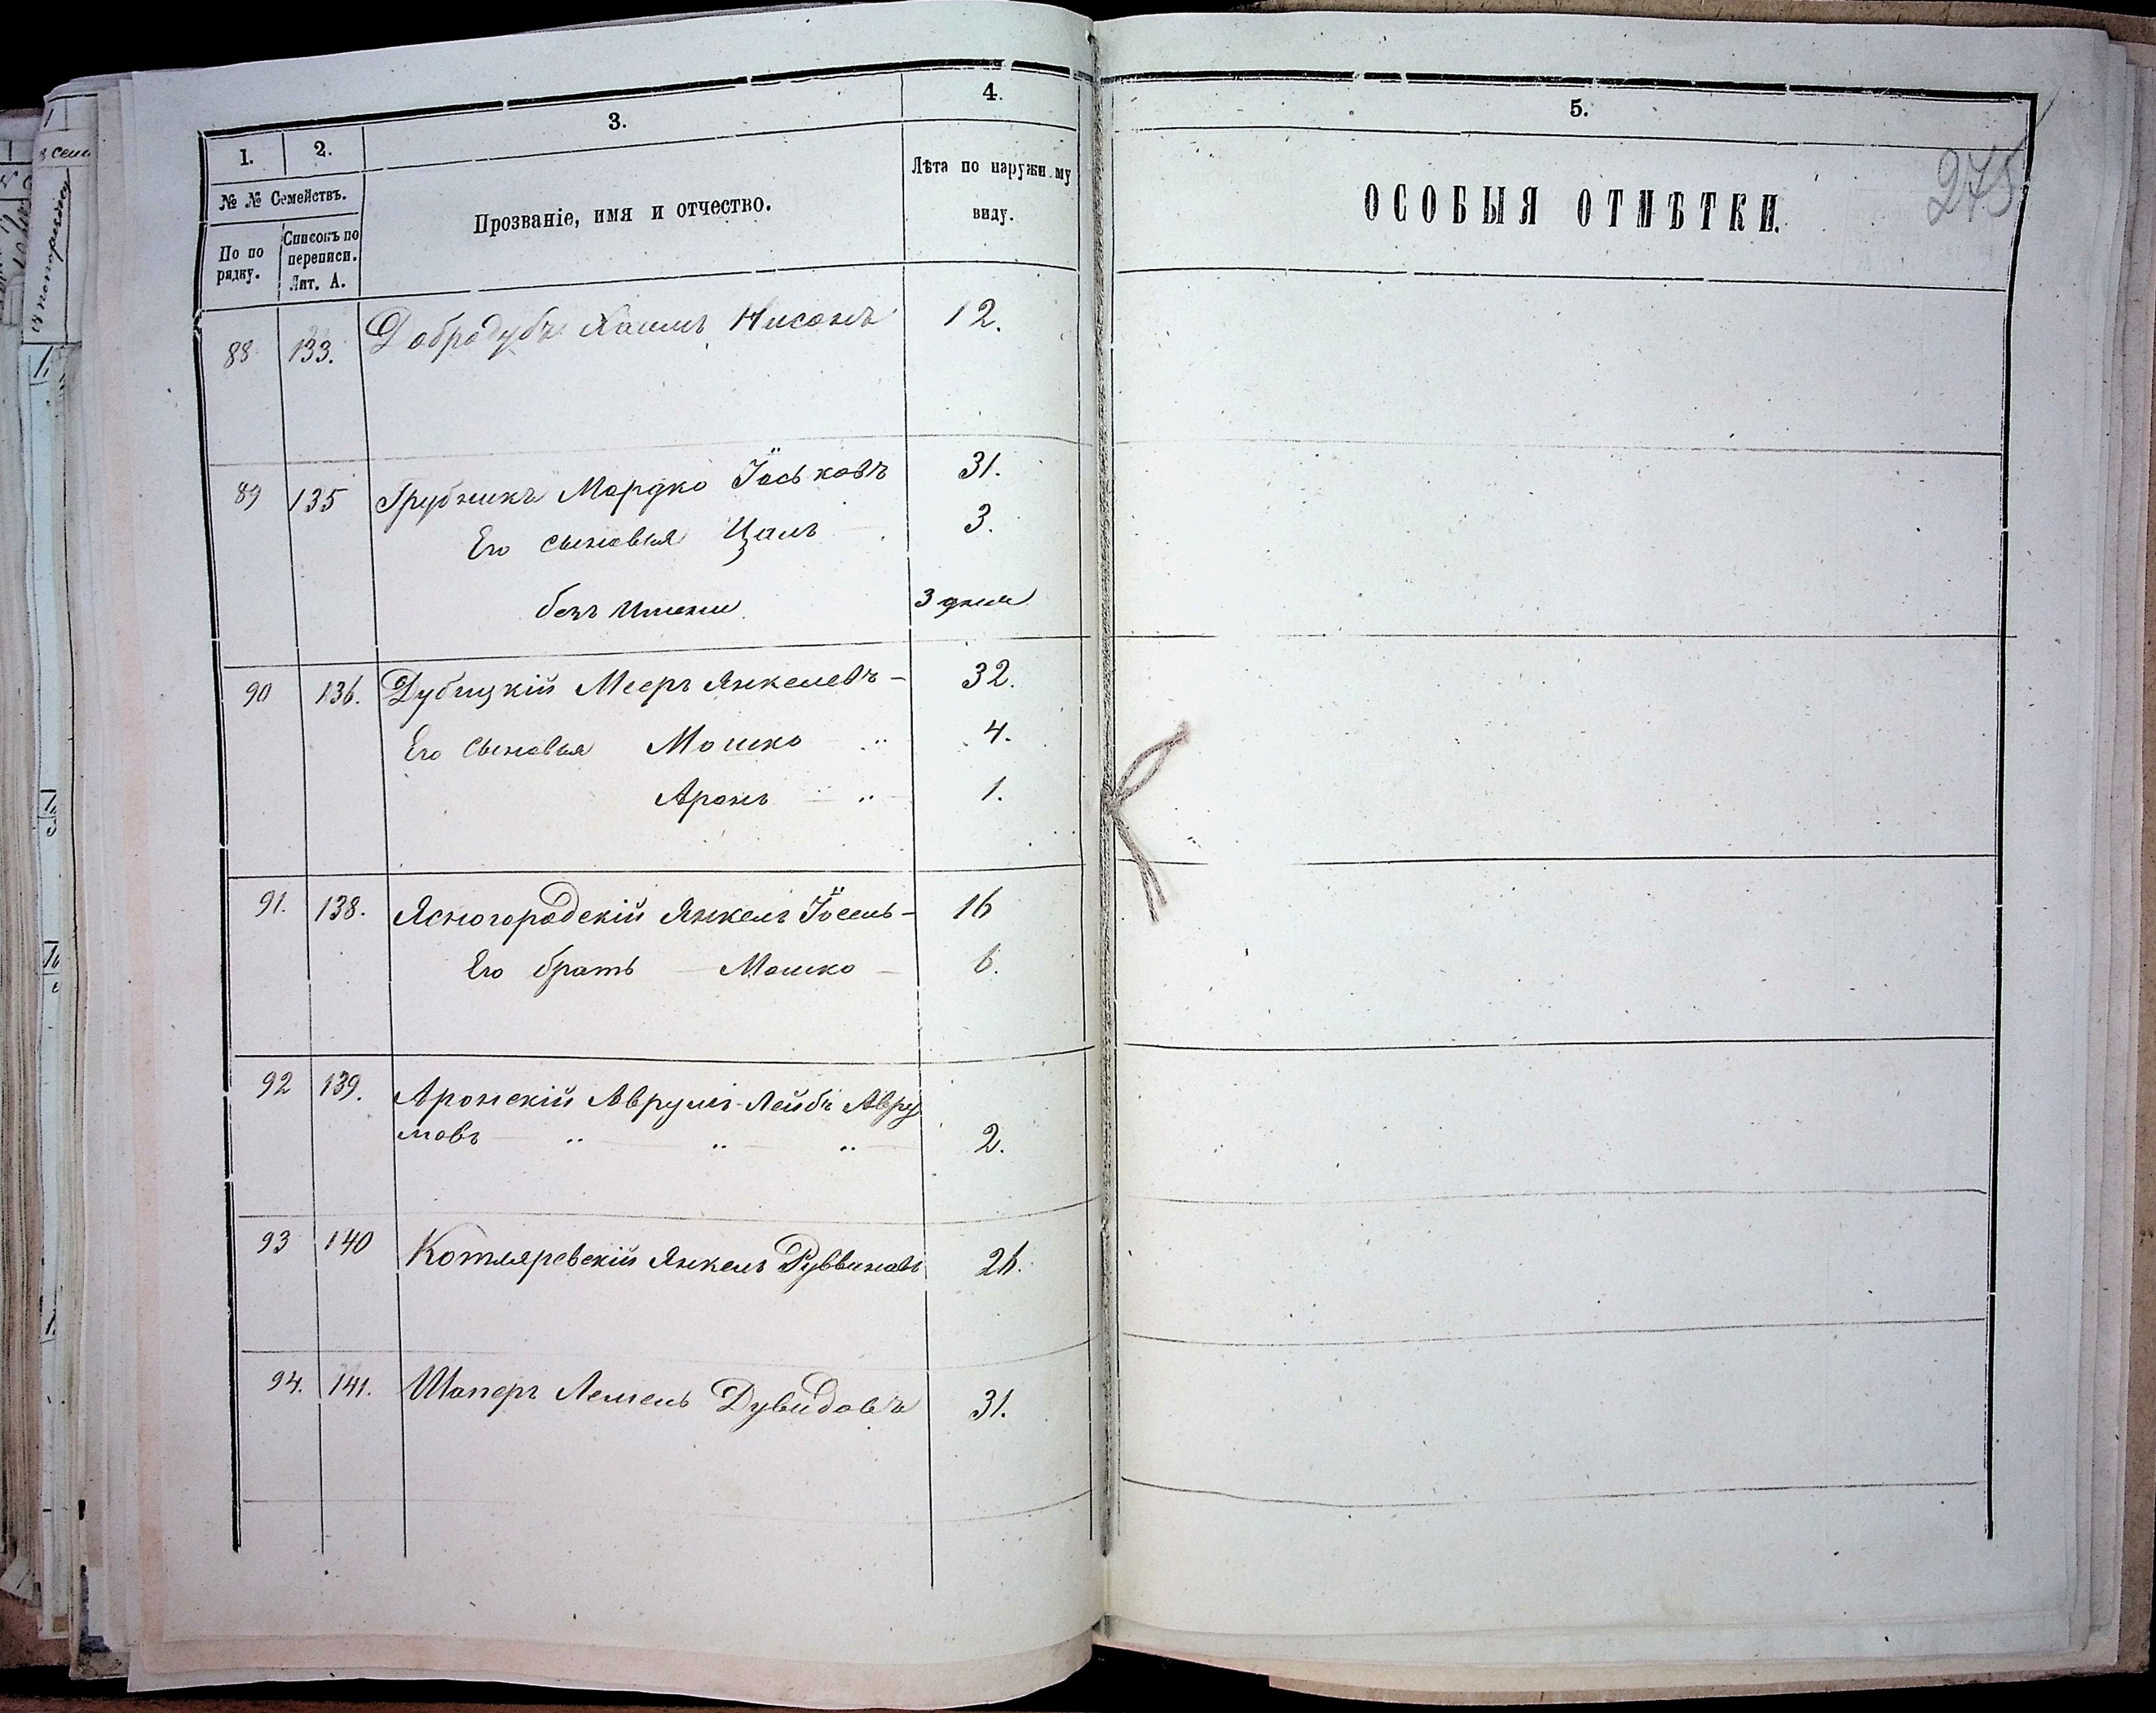 1. 2. 3. 4. 5.
№ № Семействъ.
По по рядку.
Списокъ по переписи. Лит. А.
Прозваніе, имя и отчество.
Лѣта по наружн му виду.
ОСОБЫЯ ОТМѢТКИ.
275
88 133. Добродубъ Хаимъ Нисонъ 12.
89 135 Грубникъ Мордко Іоськовъ 31.
Его сыновья Цаль 3.
безъ имени 3 дня
90 136. Дубицкій Мееръ Янкелевъ - 32.
Его сыновья Мошко 4.
Аронъ 1.
91. 138. Ясногородскій Янкель Іосель - 16
Его братъ Мошко - 6.
92 139. Аронскій Аврумъ-Лейбъ Авру
мовъ 2.
93 140 Котляревскій Янкель Руввиновъ 26.
94. 141. Шаперъ Лемель Дувидовъ 31.